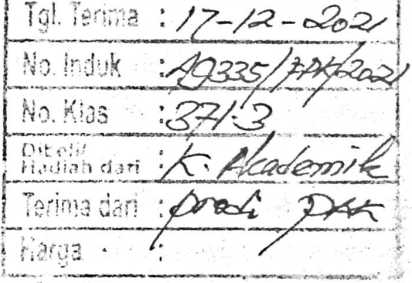 Tgl. Terima : 17-12-2021
No. Induk : A9335/PAK/2021
No. Klas : 371.3
Dibeli/
Hadiah dari : K. Akademik
Terima dari : prodi PAK
Harga :